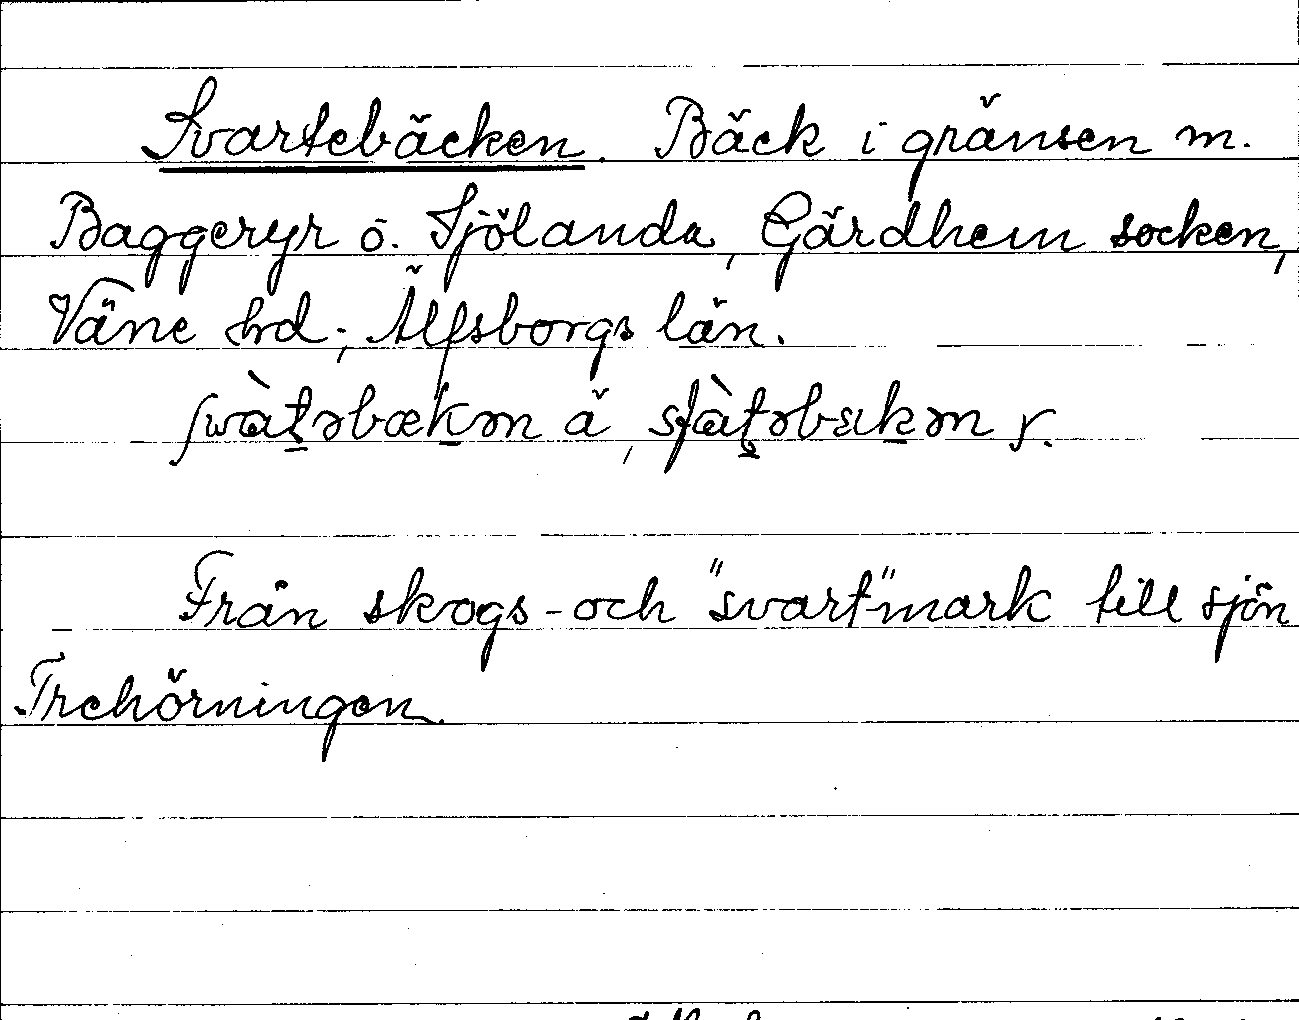 Svartebäcken. Bäck i gränsen m.
Baggeryr o. Sjölanda, Gärdhem socken,
Väne hrd; Älfsborgs län.
Från skogs- och "svart"mark till sjön
Trehörningen.